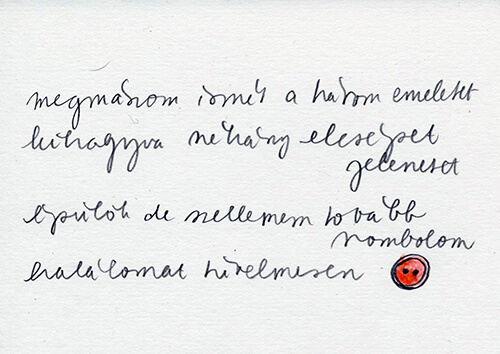 megmászom ismét a három emeletet
kihagyva néhány elcsépelt
jelenetet
épülök de szellemem tovább
rombolom
halálomat türelmesen